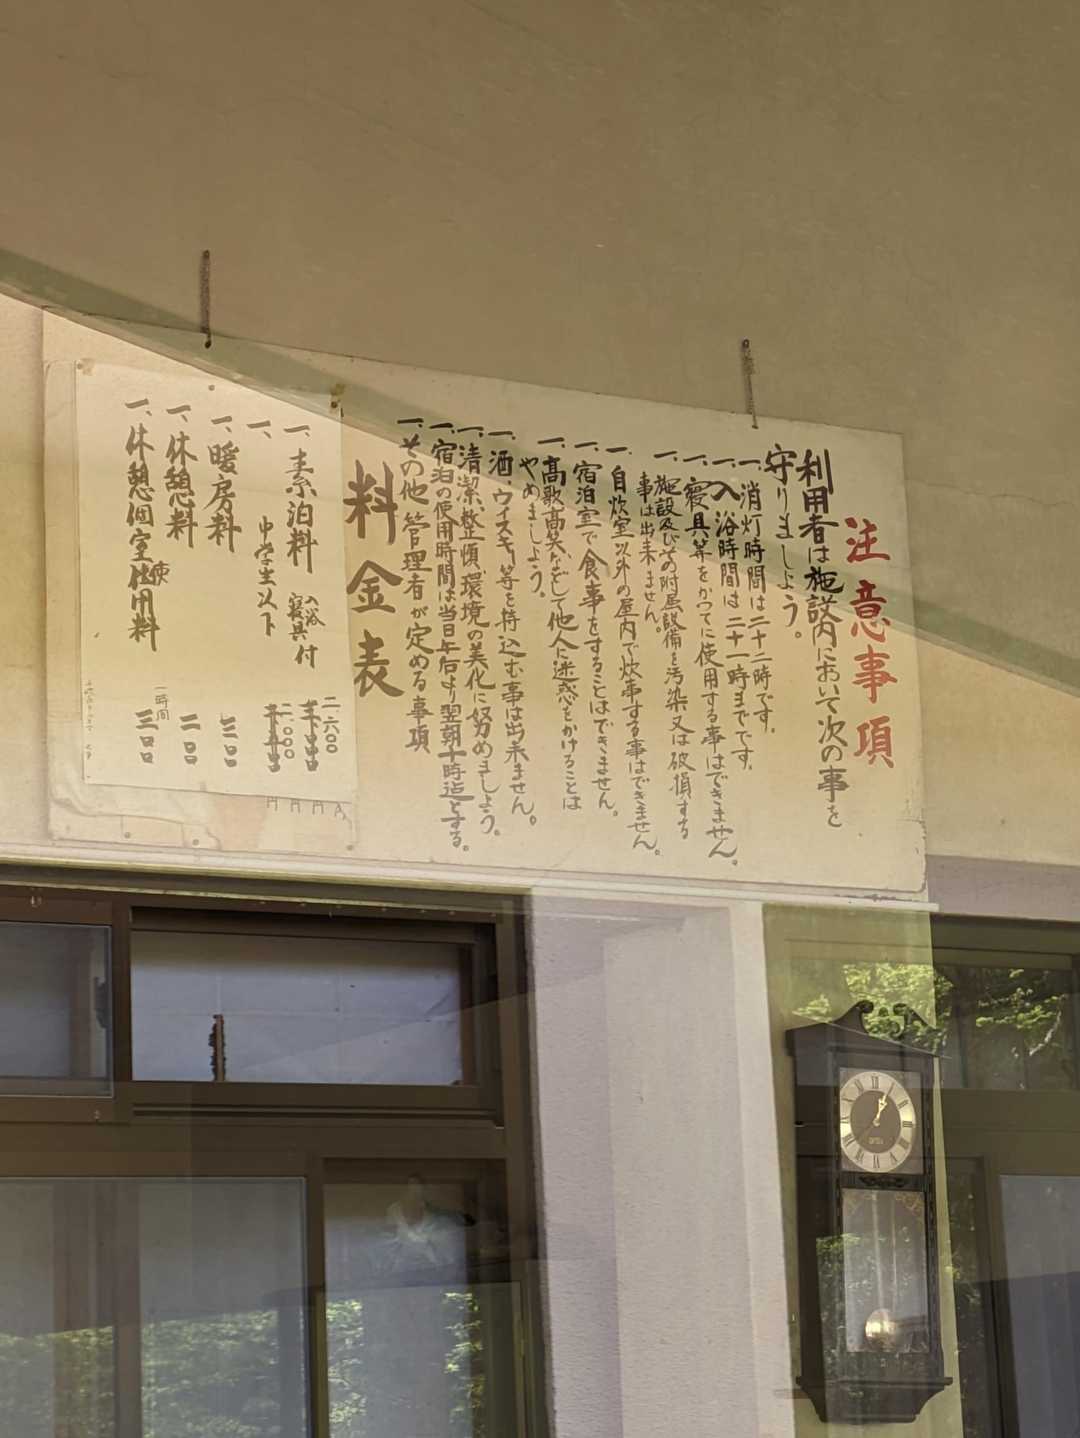 注意事項
利用者は施設内において次の事を
守りましょう。
一、消灯時間は二十二時です。
一、入浴時間は二十一時までです。
一、寝具等をかつてに使用する事はできません。
一、施設及びその附属設備を汚染又は破損する
事は出来ません。
一、自炊室以外の屋内で炊事する事はできません。
一、宿泊室で食事をすることはできません。
一、高歌高笑などして他人に迷惑をかけることは
やめましょう。
一、酒、ウイスキー等を持込む事は出来ません。
一、清潔、整頓、環境の美化に努めましょう。
一、宿泊の使用時間は当日午后より翌朝十時迄とする。
一、その他管理者が定める事項
料金表
一、素泊料 入浴 寝具付 二・六〇〇
一、中学生以下 二・〇〇〇
一、暖房料 三〇〇
一、休憩料 二〇〇
一、休憩個室使用料 一時間 三〇〇